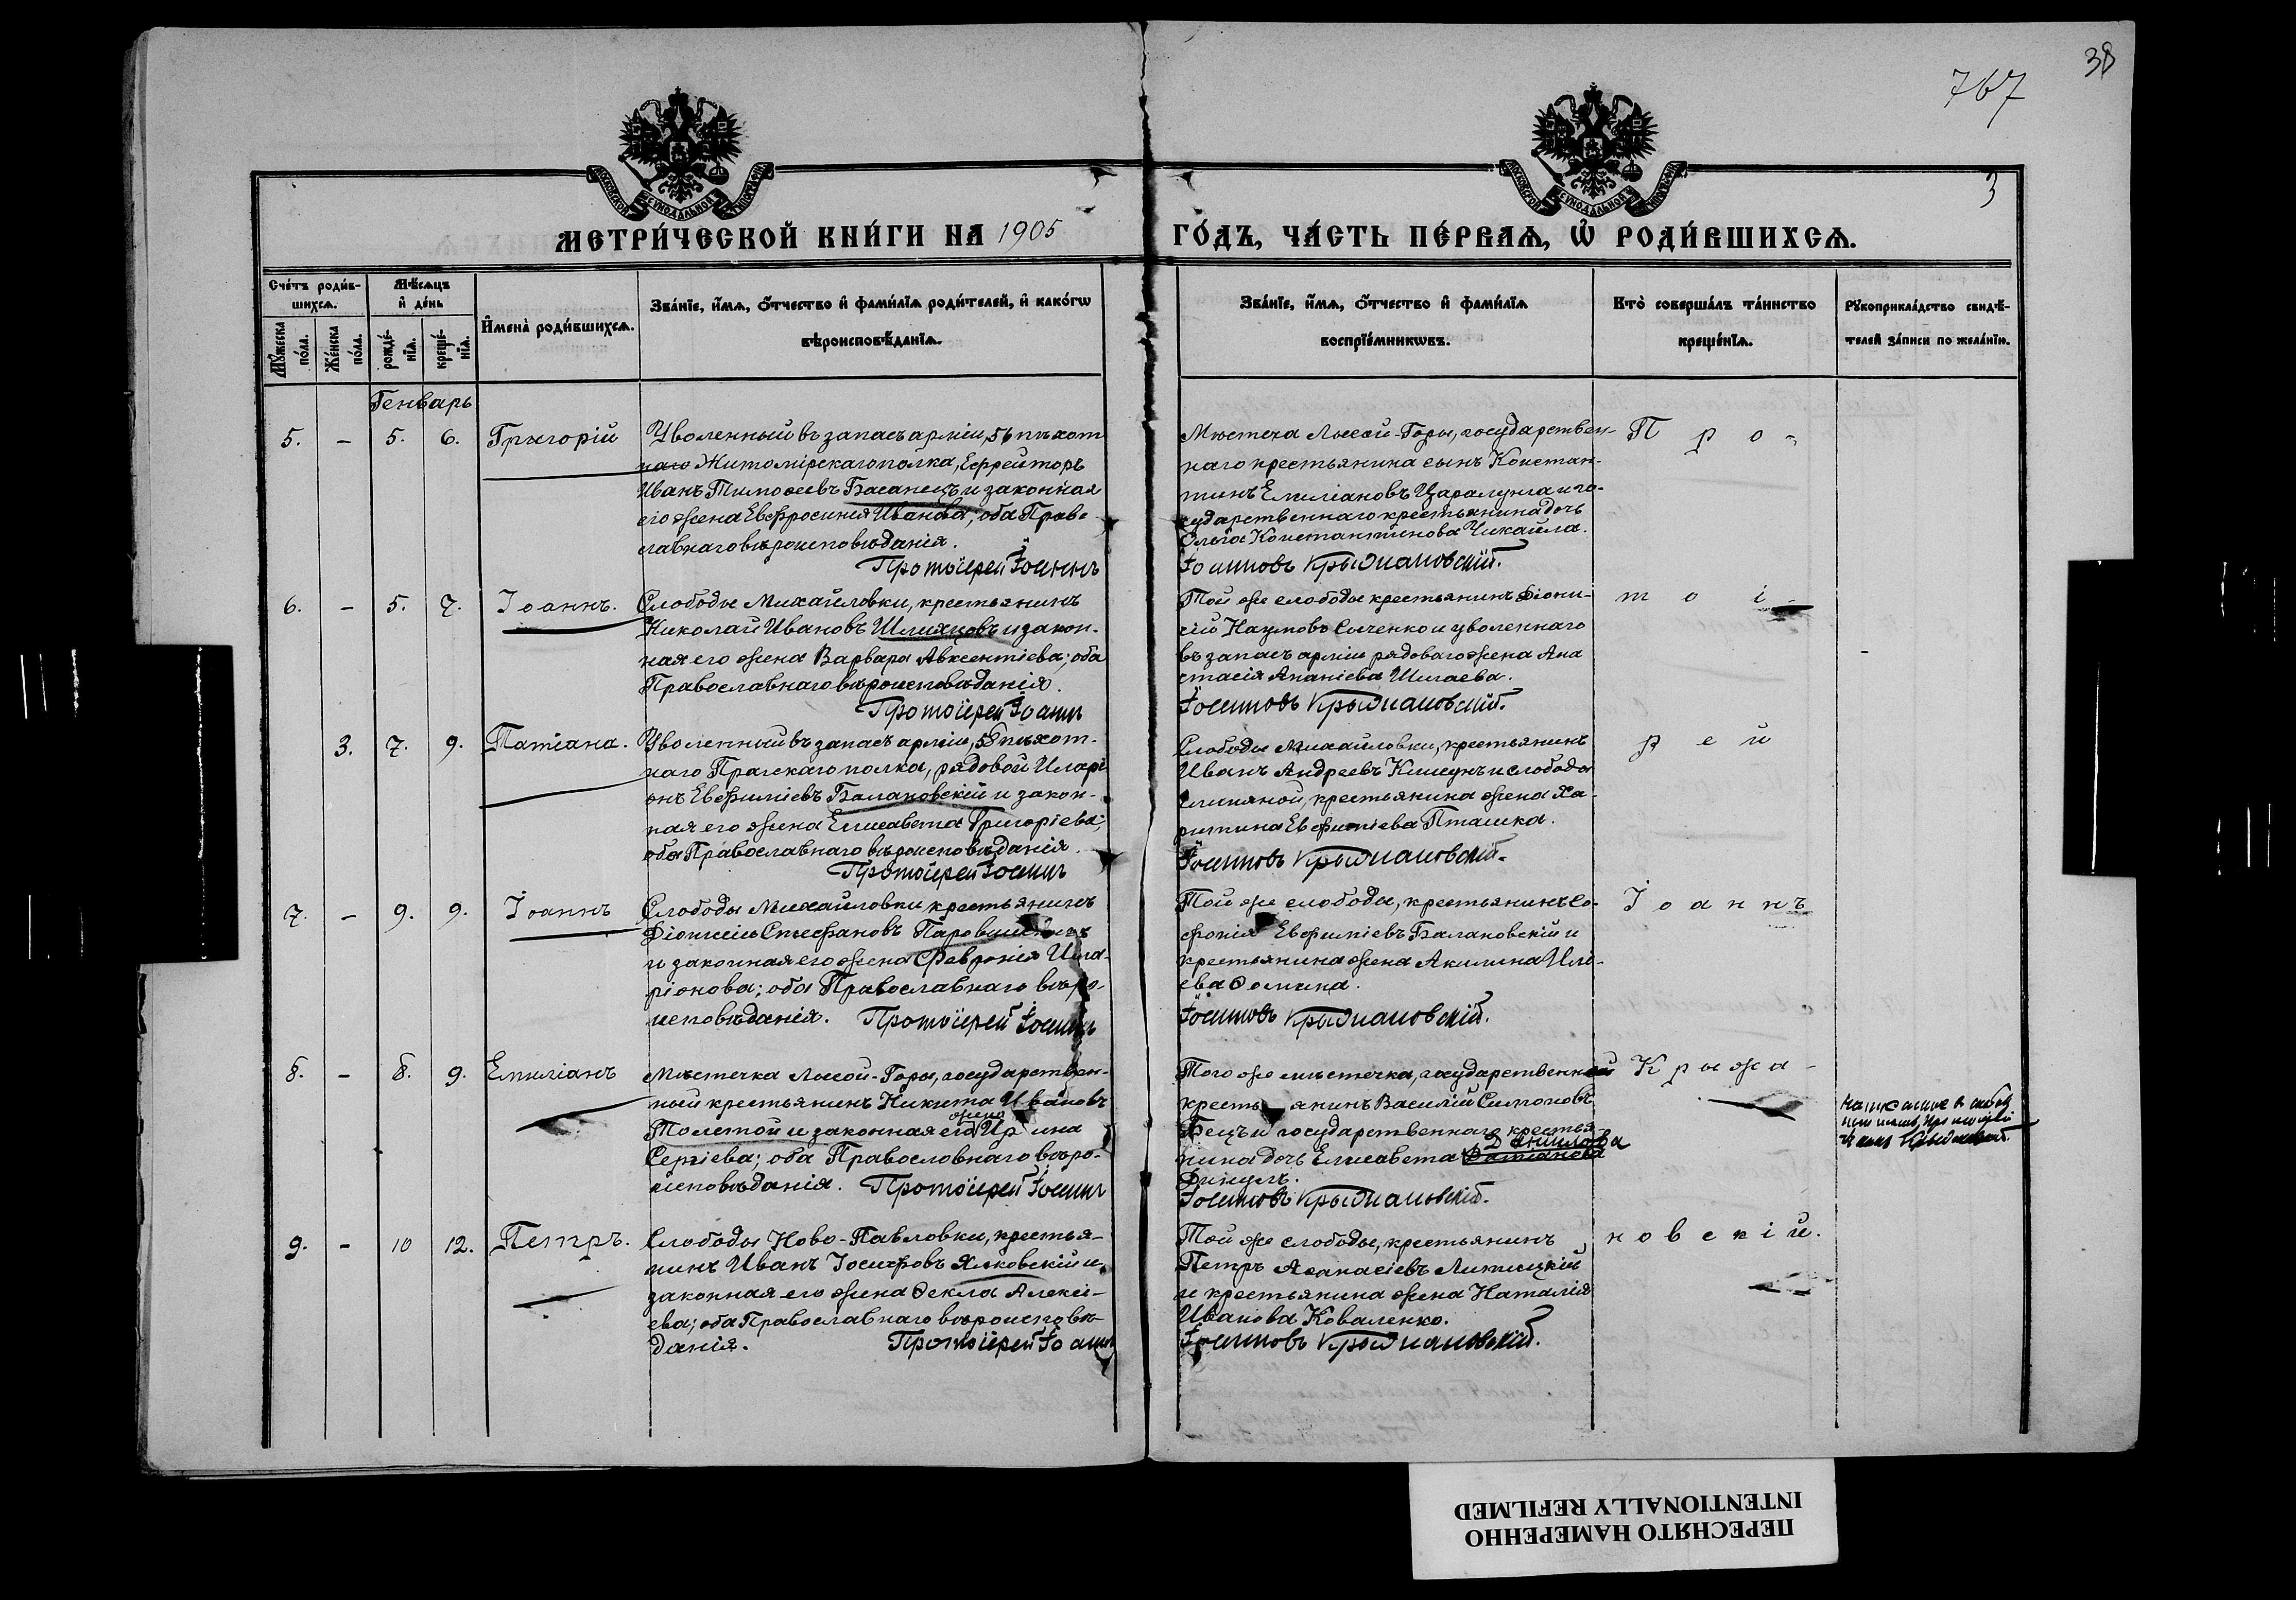 38
767
3
МОСКОВСКОЙ СѴНОДАЛЬНОЙ ТИПОГРАФІИ
МОСКОВСКОЙ СѴНОДАЛЬНОЙ ТИПОГРАФІИ
МЕТРИ́ЧЕСКОЙ КНИ́ГИ НА 1905 ГО́ДЪ, ЧА́СТЬ ПЕ́РВАѦ, Ѡ҆ РОДИ́ВШИХСѦ.
Сче́тъ роди́в-
шихсѧ.
Мꙋ́жеска по́ла.
Же́нска по́ла.
Мѣ́сѧцъ
и҆ де́нь
рожде́-
нїѧ.
креще́-
нїѧ.
И҆мена̀ роди́вшихсѧ.
Зва́нїе, и҆́мѧ, ѻ҆́тчество и҆ фами́лїѧ роди́телей, и҆ како́гѡ
вѣроисповѣ́данїѧ.
Зва́нїе, и҆́мѧ, ѻ҆́тчество и҆ фами́лїѧ
воспрїе́мникѡвъ.
Кто̀ соверша́лъ та́инство
креще́нїѧ.
Рꙋкоприкла́дство свидѣ́-
телей за́писи по жела́нїю.
Генварь
5. - 5. 6. Григорій
Уволенный въ запасъ арміи, 56 пѣхот
наго Житомірскаго полка, Ефрейторъ
Иванъ Тимоѳеевъ Басанецъ и законная
его жена Евфросинія Иванова; оба Прав-
славнаго вѣроисповѣданія.
Протоіерей Іоаннъ
Мѣстечка Лысой-Горы, государствен-
наго крестьянина сынъ Констан-
тинъ Емиліановъ Царалунга и го-
сударственнаго крестьянина дочь
Ольга Константинова Чикаила.
Іоанновъ Крыжановскій.
Про-
6. - 5. 7. Іоаннъ.
Слободы Михайловки, крестьянинъ
Николай Ивановъ Шляховъ и закон-
ная его жена Варвара Авксентіева; оба
Православнаго вѣроисповѣданія.
Протоіерей Іоаннъ
Той же слободы крестьянинъ Діони-
сій Наумовъ Сыченко и уволеннаго
въ запасъ арміи рядоваго жена Ана
стасія Ананіева Шилаева.
Іоанновъ Крыжановскій.
тоі-
3. 7. 9. Татіана.
Уволенный въ запасъ арміи, 58 пѣхот-
наго Прагскаго полка, рядовой Иларі
онъ Евфиміевъ Балановскій и закон-
ная его жена Елисавета Григоріева;
оба Православнаго вѣроисповѣданія.
Протоіерей Іоаннъ
Слободы Михайловки, крестьянинъ
Иванъ Андреевъ Клицунъ и слободы
Глиняной, крестьянина жена Ха-
ритина Евфиміева Пташка.
Іоанновъ Крыжановскій.
рей
7. - 9. 9. Іоаннъ
Слободы Михайловки крестьянинъ
Діонисій Стефановъ
и законная его жена Февронія Ила-
ріонова; оба Православнаго вѣро-
исповѣданія. Протоіерей Іоаннъ
Той же слободы, крестьянинъ Со-
фонія Евфиміевъ Балановскій и
крестьянина жена Акилина Илі-
ева Ѳомина.
Іоанновъ Крыжановскій.
Іоаннъ
8. - 8. 9. Емиліанъ
Мѣстечка Лысой-Горы, государствен-
ный крестьянинъ Никита Ивановъ
Толстой и законная его жена Ирина
Сергіева; оба Православнаго вѣро-
исповѣданія. Протоіерей Іоаннъ
Того же мѣстечка, государственный
крестьянинъ Василій Симоновъ
Бецъ и государственнаго крестья-
нина дочь Елисавета Даміанова Даниилова
Дикулъ.
Іоанновъ Крыжановскій.
Крыжа-
9. - 10 12. Петръ.
Слободы Ново-Павловки, крестья-
нинъ Иванъ Іосифовъ Ялковскій и
законная его жена Ѳекла Алексі-
ева; оба Православнаго вѣроисповѣ-
данія. Протоіерей Іоаннъ
Той же слободы, крестьянинъ
Петръ Аѳанасіевъ Липницкій
и крестьянина жена Наталія
Иванова Коваленко.
Іоанновъ Крыжановскій.
новскій.
ПЕРЕСНЯТО НАМЕРЕННО
INTENTIONALLY REFILMED